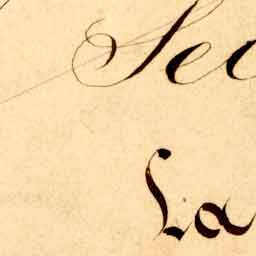 Sec
La